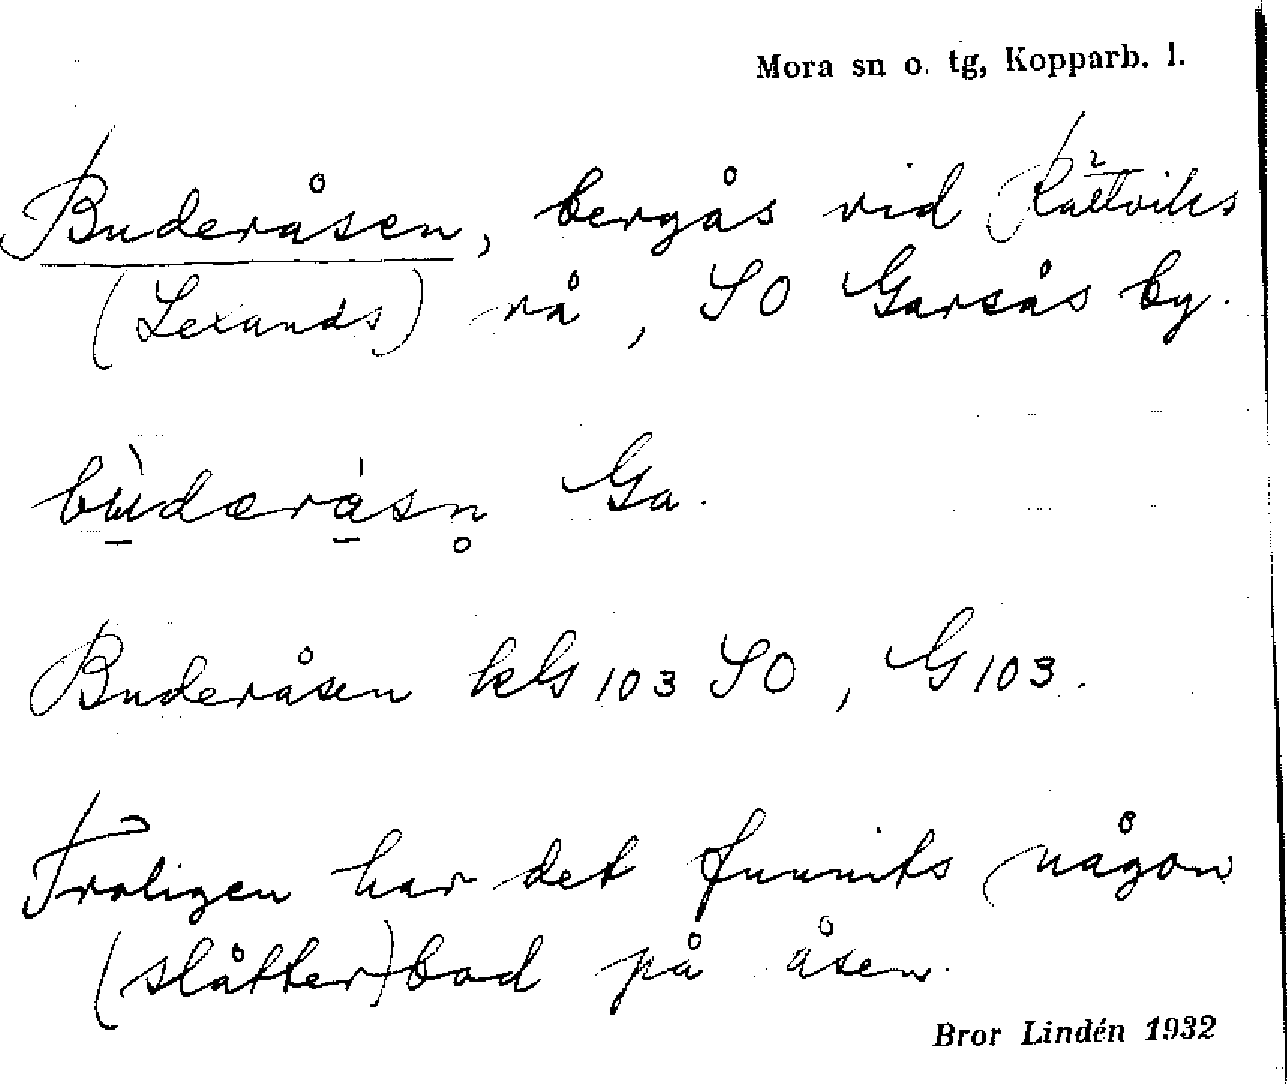 Mora sn o. tg, Kopparb. l.
Buderåsen, bergås vid Rättviks
(Lexands) rå, SO Garsås by.
bùdæràsn̥ Ga.
Buderåsen kG 103 SO, G 103.
Troligen har det funnits någon
(slåtter)bod på åsen.
Bror Lindén 1932